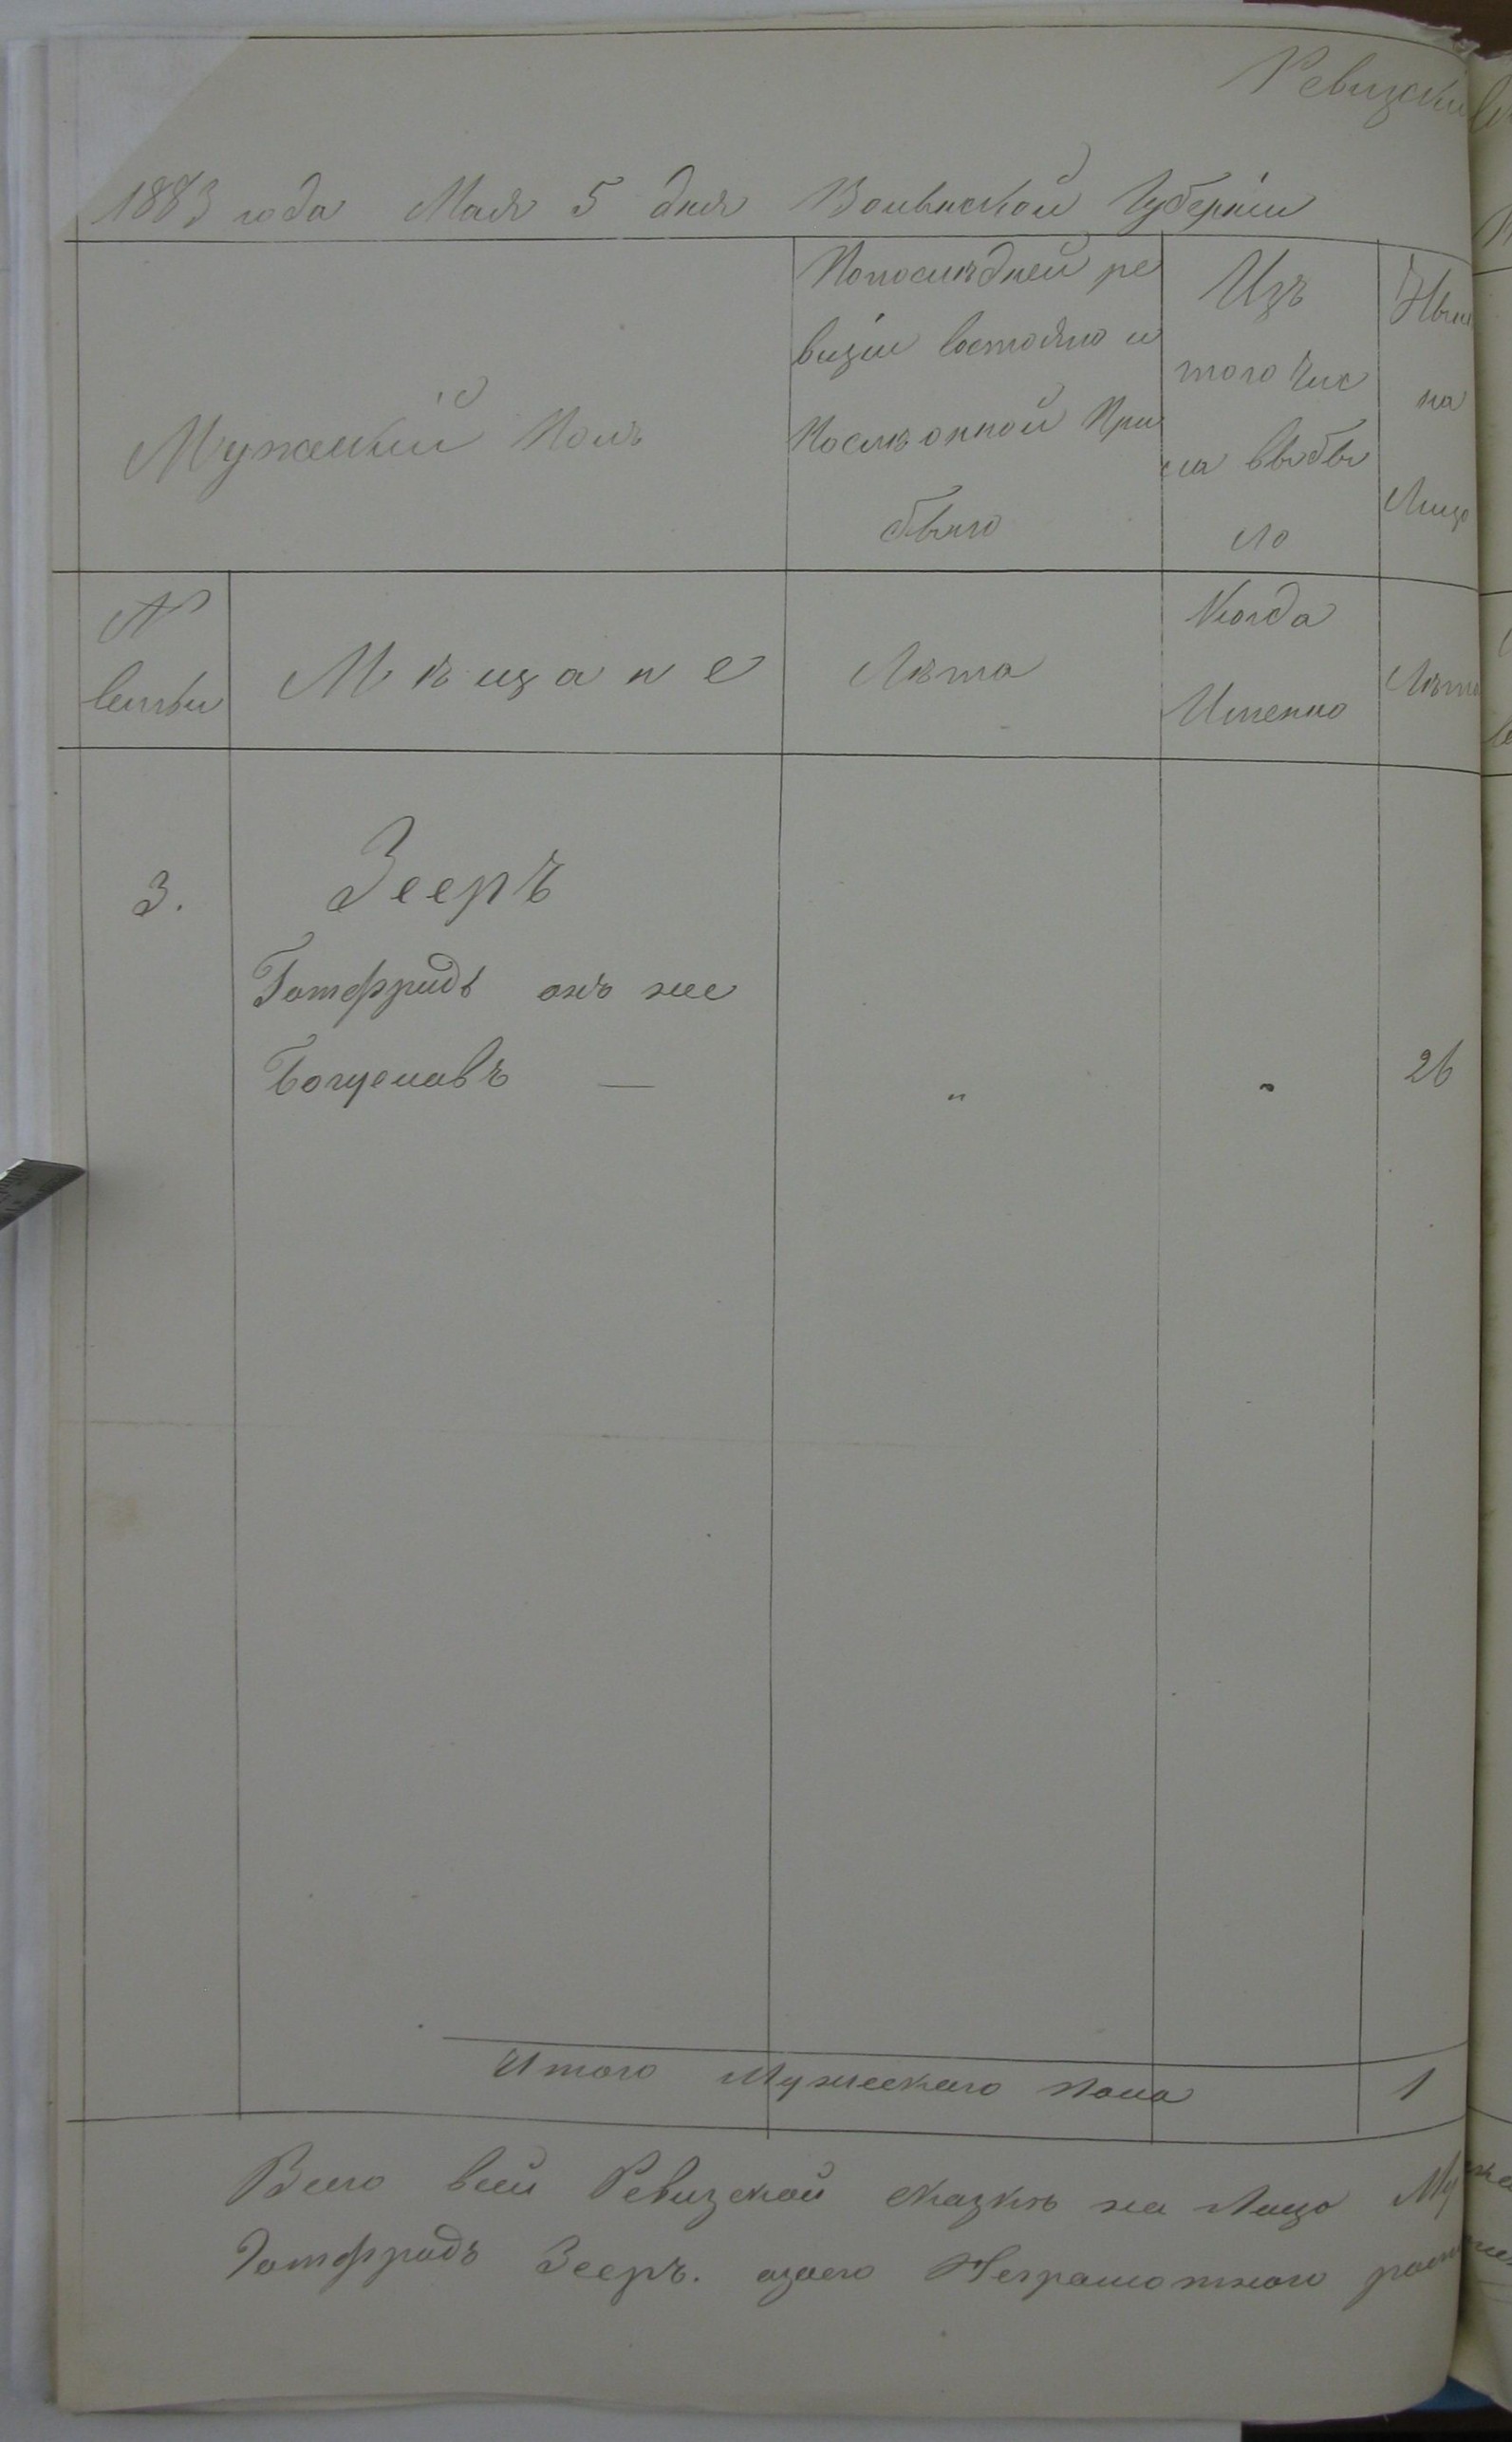 Ревизская
1883 года Мая 5 дня Волынской Губерніи
Мужескій Полъ
Попослѣдней ре
визіи состояло и
Послѣ онной При
было
Изъ
того Чис
ла выбы
ло
Нынѣ
на
Лицо
№
семьи
Мѣщане
Лѣта
Когда
Именно
Лѣта
3.
Зееръ
Готфридъ онъ же
Богуславъ —
"
"
26
Итого Мужескаго пола
1
Всего всей Ревизской сказкѣ на Лицо Му
Готфридъ Зееръ. азаего Неграмотного